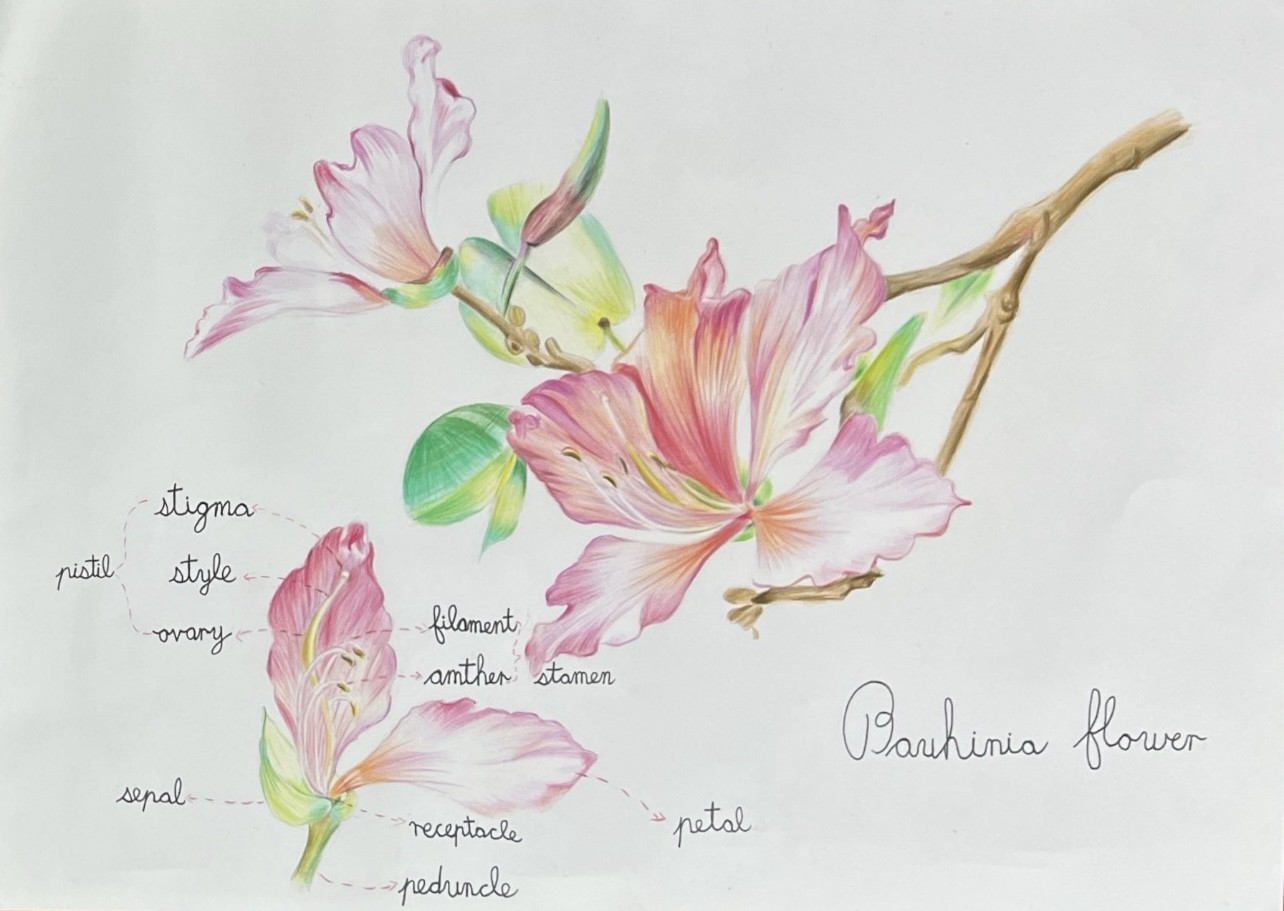 stigma
pistil
style
ovary
filament
anther
stamen
Bauhinia flower
sepal
receptacle
petal
peduncle